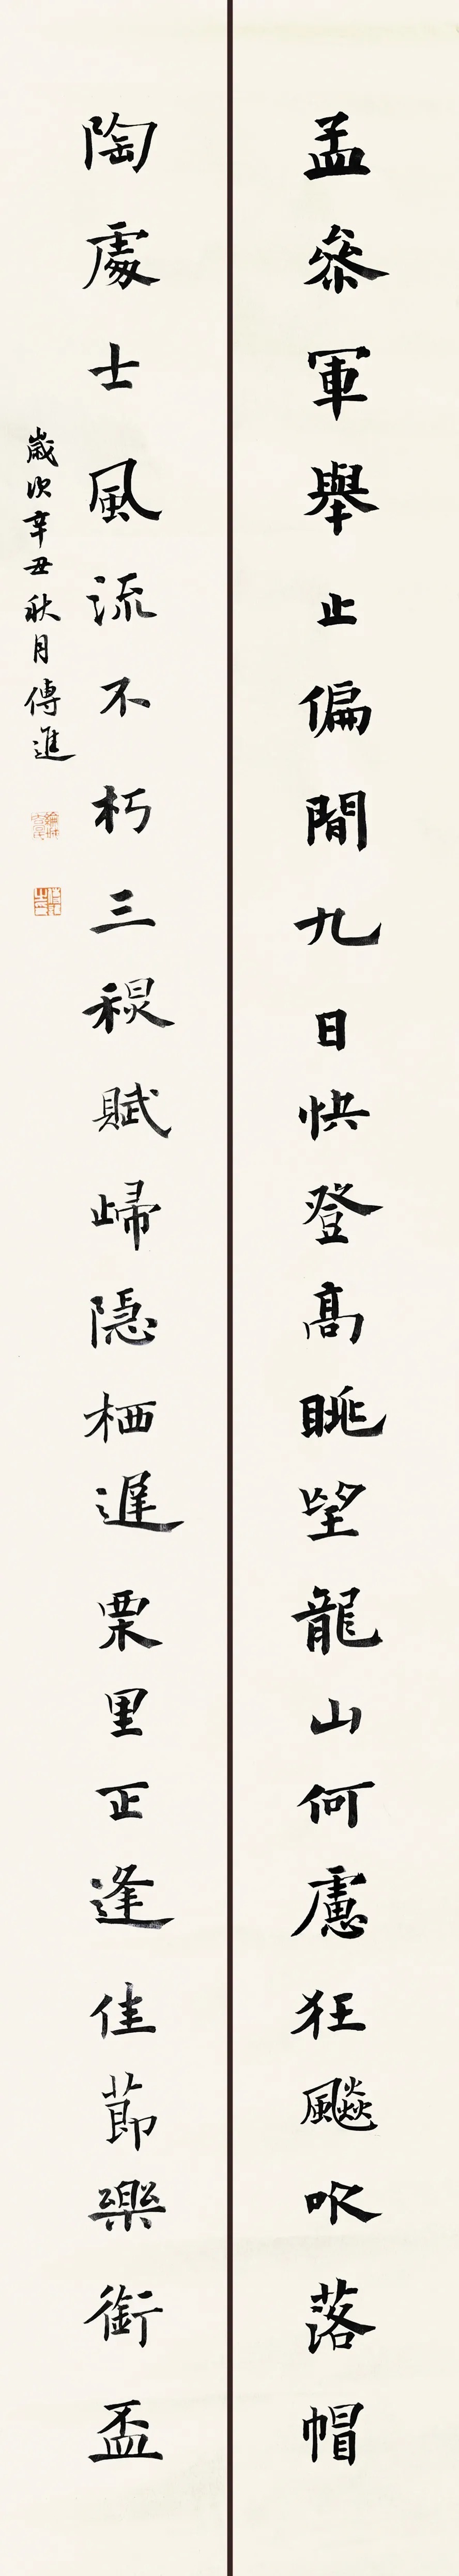 孟參軍舉止偏閒九日快登高眺望龍山何慮狂飈吹落帽
陶處士風流不朽三稷賦歸隱栖遲栗里正逢佳節樂銜盃
歲次辛丑秋月傅進